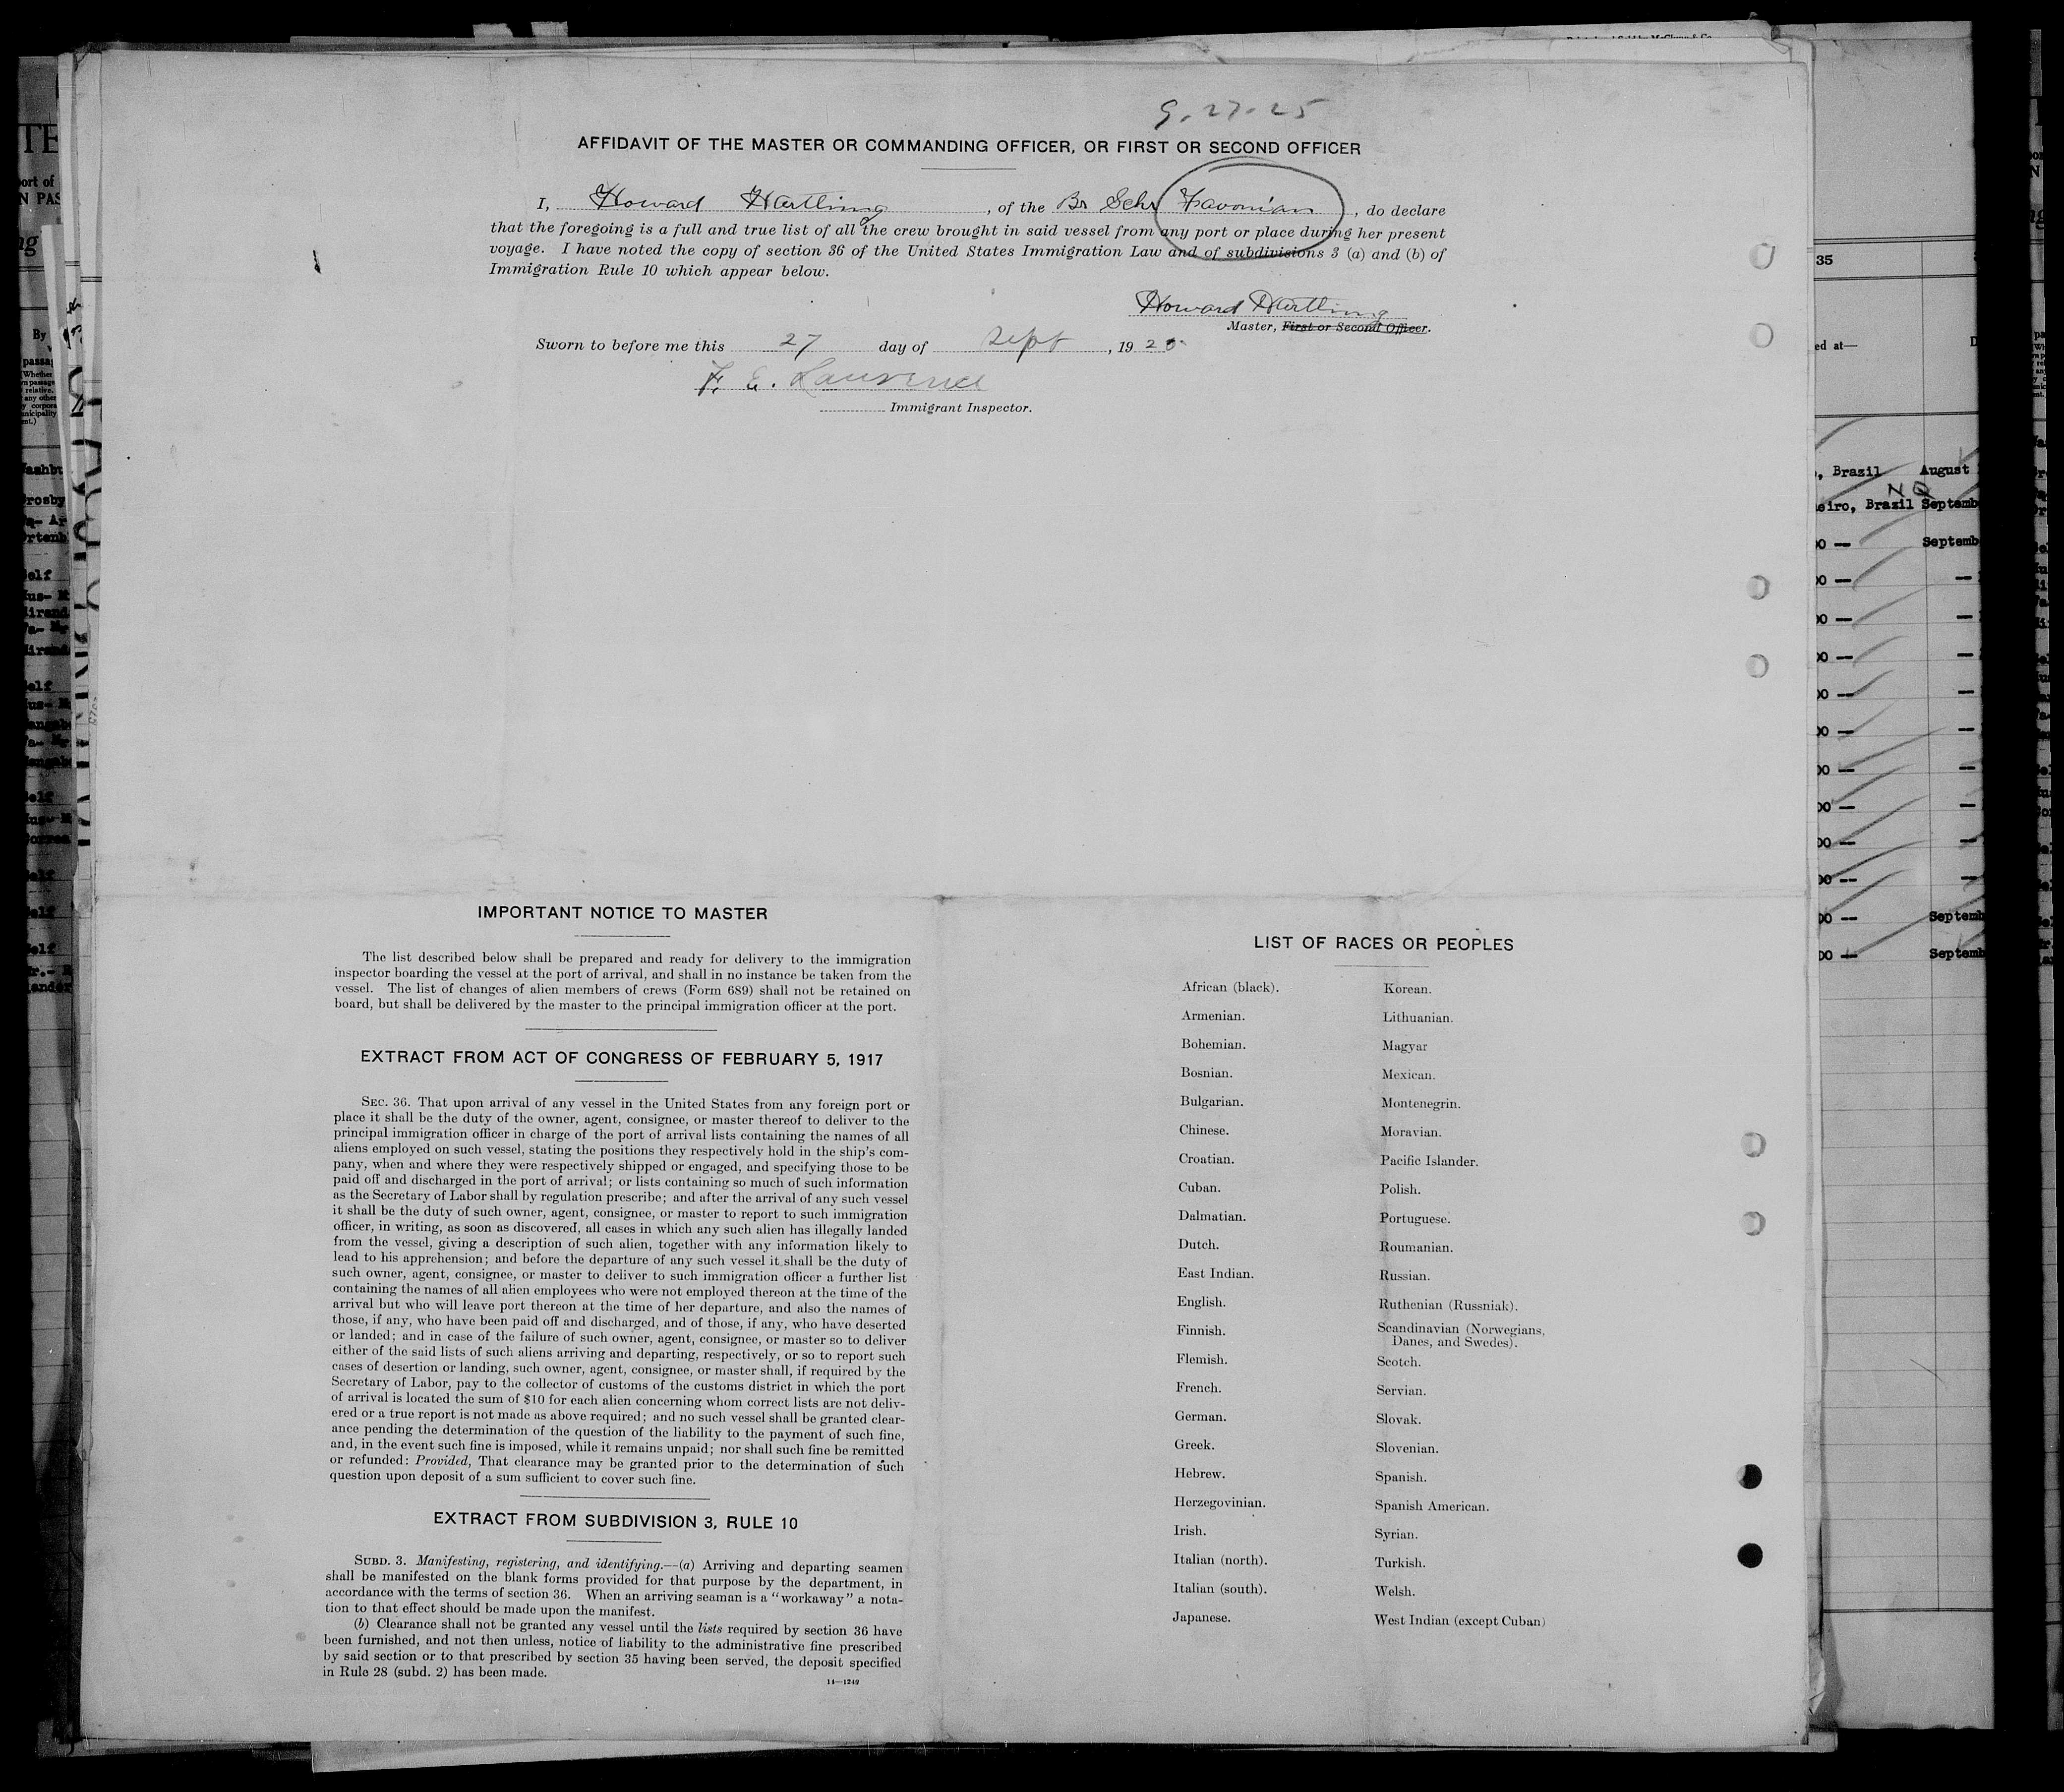 9.27.25
AFFIDAVIT OF THE MASTER OR COMMANDING OFFICER, OR FIRST OR SECOND OFFICER
I, Howard Hartling, of the Br Schr Favonian, do declare
that the foregoing is a full and true list of all the crew brought in said vessel from any port or place during her present
voyage. I have noted the copy of section 36 of the United States Immigration Law and of subdivisions 3 (a) and (b) of
Immigration Rule 10 which appear below.
Howard Hartling
Master, First or Second Officer.
Sworn to before me this 27 day of Sept, 1925
F. E. Lawrence
Immigrant Inspector.
IMPORTANT NOTICE TO MASTER
The list described below shall be prepared and ready for delivery to the immigration
inspector boarding the vessel at the port of arrival, and shall in no instance be taken from the
vessel. The list of changes of alien members of crews (Form 689) shall not be retained on
board, but shall be delivered by the master to the principal immigration officer at the port.
EXTRACT FROM ACT OF CONGRESS OF FEBRUARY 5, 1917
SEC. 36. That upon arrival of any vessel in the United States from any foreign port or
place it shall be the duty of the owner, agent, consignee, or master thereof to deliver to the
principal immigration officer in charge of the port of arrival lists containing the names of all
aliens employed on such vessel, stating the positions they respectively hold in the ship's com-
pany, when and where they were respectively shipped or engaged, and specifying those to be
paid off and discharged in the port of arrival; or lists containing so much of such information
as the Secretary of Labor shall by regulation prescribe; and after the arrival of any such vessel
it shall be the duty of such owner, agent, consignee, or master to report to such immigration
officer, in writing, as soon as discovered, all cases in which any such alien has illegally landed
from the vessel, giving a description of such alien, together with any information likely to
lead to his apprehension; and before the departure of any such vessel it shall be the duty of
such owner, agent, consignee, or master to deliver to such immigration officer a further list
containing the names of all alien employees who were not employed thereon at the time of the
arrival but who will leave port thereon at the time of her departure, and also the names of
those, if any, who have been paid off and discharged, and of those, if any, who have deserted
or landed; and in case of the failure of such owner, agent, consignee, or master so to deliver
either of the said lists of such aliens arriving and departing, respectively, or so to report such
cases of desertion or landing, such owner, agent, consignee, or master shall, if required by the
Secretary of Labor, pay to the collector of customs of the customs district in which the port
of arrival is located the sum of $10 for each alien concerning whom correct lists are not deliv-
ered or a true report is not made as above required; and no such vessel shall be granted clear-
ance pending the determination of the question of the liability to the payment of such fine,
and, in the event such fine is imposed, while it remains unpaid; nor shall such fine be remitted
or refunded: Provided, That clearance may be granted prior to the determination of such
question upon deposit of a sum sufficient to cover such fine.
EXTRACT FROM SUBDIVISION 3, RULE 10
SUBD. 3. Manifesting, registering, and identifying.—(a) Arriving and departing seamen
shall be manifested on the blank forms provided for that purpose by the department, in
accordance with the terms of section 36. When an arriving seaman is a "workaway" a nota-
tion to that effect should be made upon the manifest.
(b) Clearance shall not be granted any vessel until the lists required by section 36 have
been furnished, and not then unless, notice of liability to the administrative fine prescribed
by said section or to that prescribed by section 35 having been served, the deposit specified
in Rule 28 (subd. 2) has been made.
14—1249
LIST OF RACES OR PEOPLES
African (black).
Armenian.
Bohemian.
Bosnian.
Bulgarian.
Chinese.
Croatian.
Cuban.
Dalmatian.
Dutch.
East Indian.
English.
Finnish.
Flemish.
French.
German.
Greek.
Hebrew.
Herzegovinian.
Irish.
Italian (north).
Italian (south).
Japanese.
Korean.
Lithuanian.
Magyar
Mexican.
Montenegrin.
Moravian.
Pacific Islander.
Polish.
Portuguese.
Roumanian.
Russian.
Ruthenian (Russniak).
Scandinavian (Norwegians,
Danes, and Swedes).
Scotch.
Servian.
Slovak.
Slovenian.
Spanish.
Spanish American.
Syrian.
Turkish.
Welsh.
West Indian (except Cuban)
35
ed at—
, Brazil August
eiro, Brazil Septemb
Septemb
Septemb
Septemb